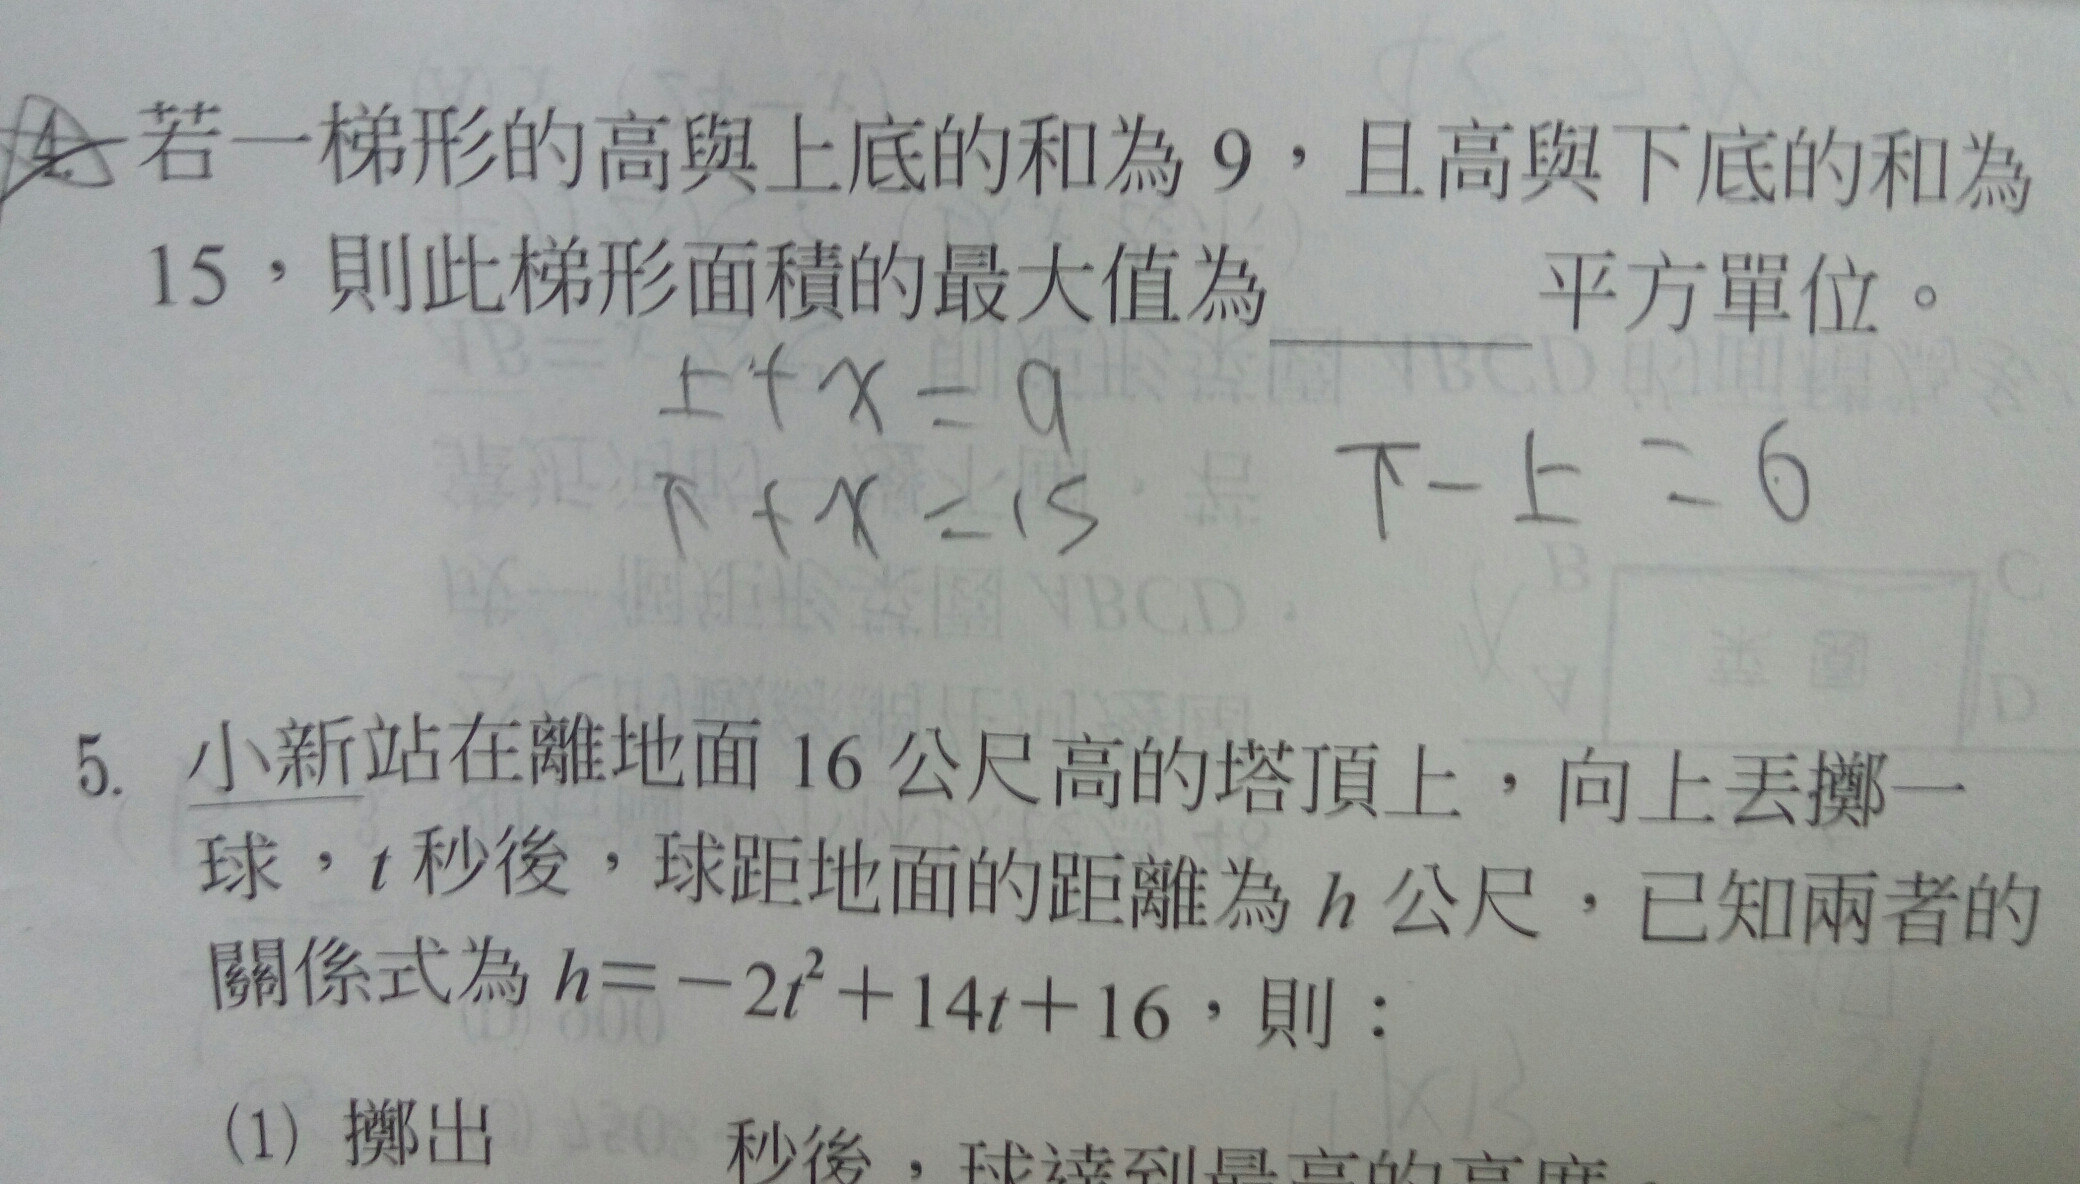 4. 若一梯形的高與上底的和為 9，且高與下底的和為
15，則此梯形面積的最大值為______平方單位。
上+x=9
下+x=15
下-上=6
5. 小新站在離地面 16 公尺高的塔頂上，向上丟擲一
球，t 秒後，球距地面的距離為 h 公尺，已知兩者的
關係式為 h=-2t²+14t+16，則：
(1) 擲出 秒後，球達到最高的高度。